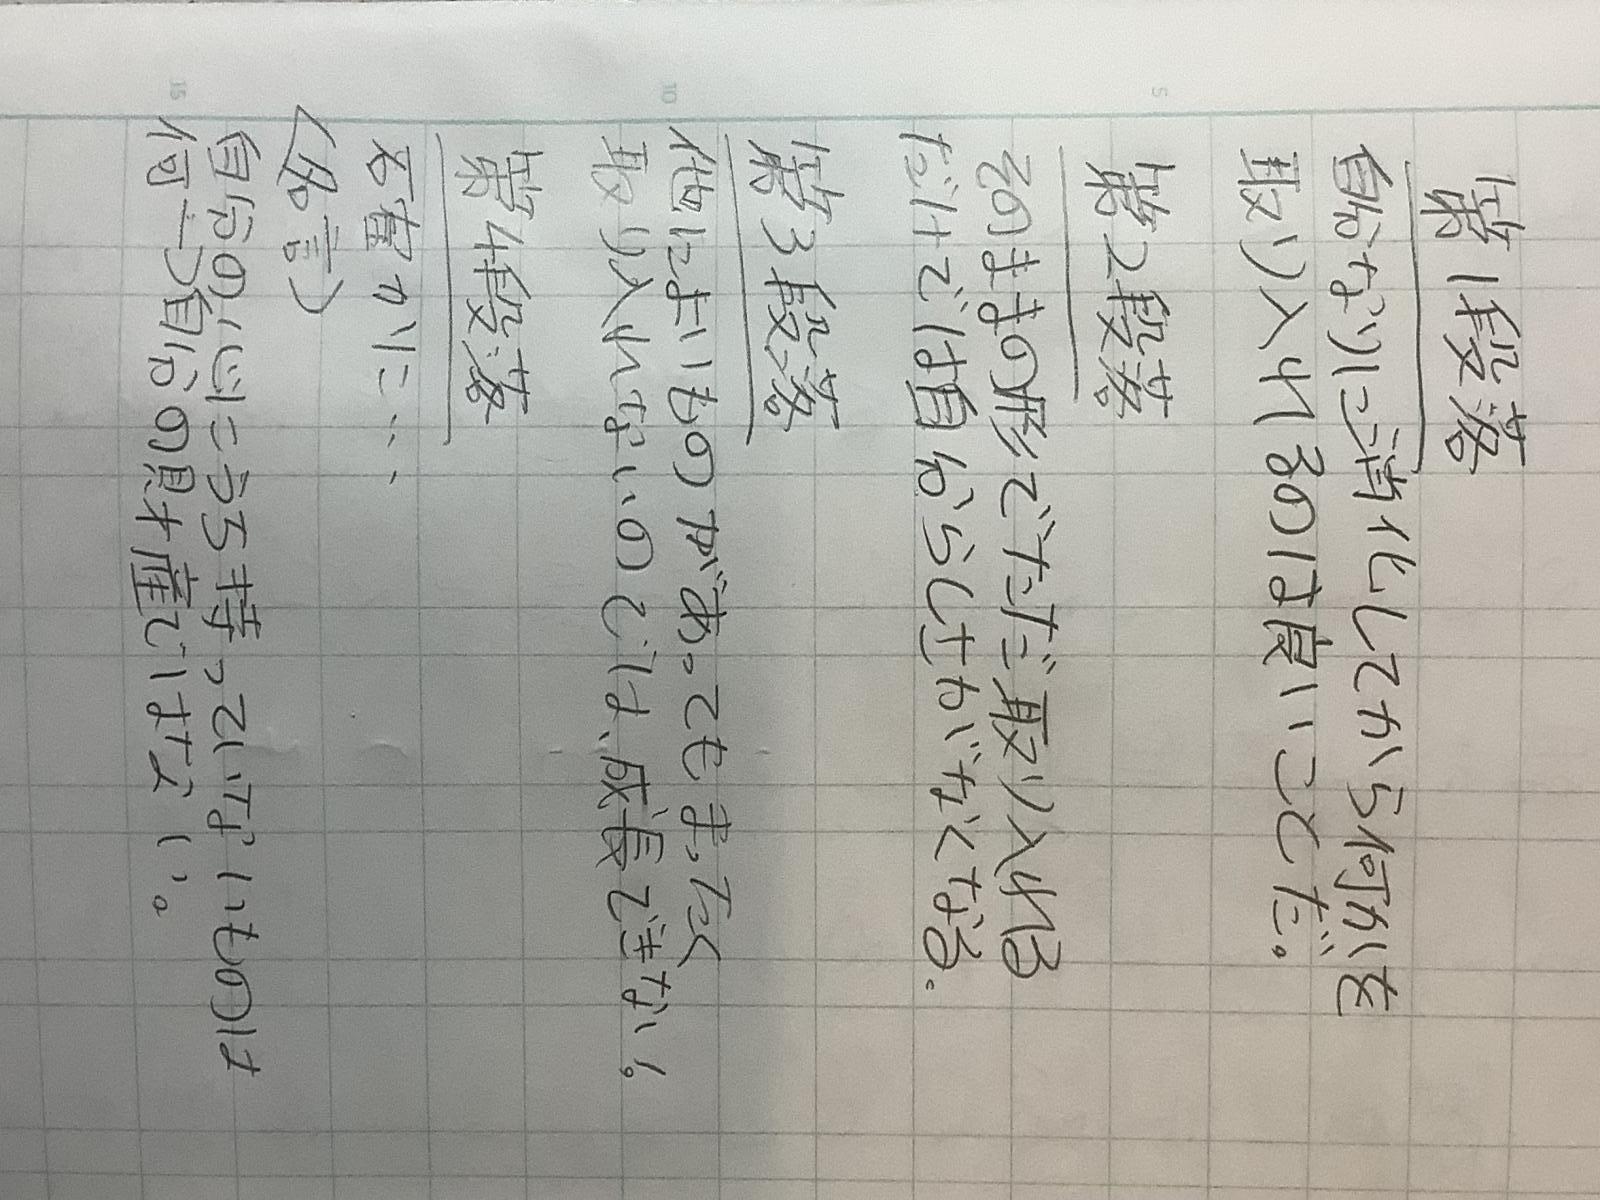 第1段落
自分なりに消化してから何かを
取り入れるのは良いことだ。
第2段落
そのままの形でただ取り入れる
だけでは自分らしさがなくなる.
第3段落
他によいものがあってもまったく
取り入れないのでは、成長できない。
第4段落
不意かに…
〈名言〉
自分の心にうち持っていないものは
何一つ自分の財産ではない。
5
10
15